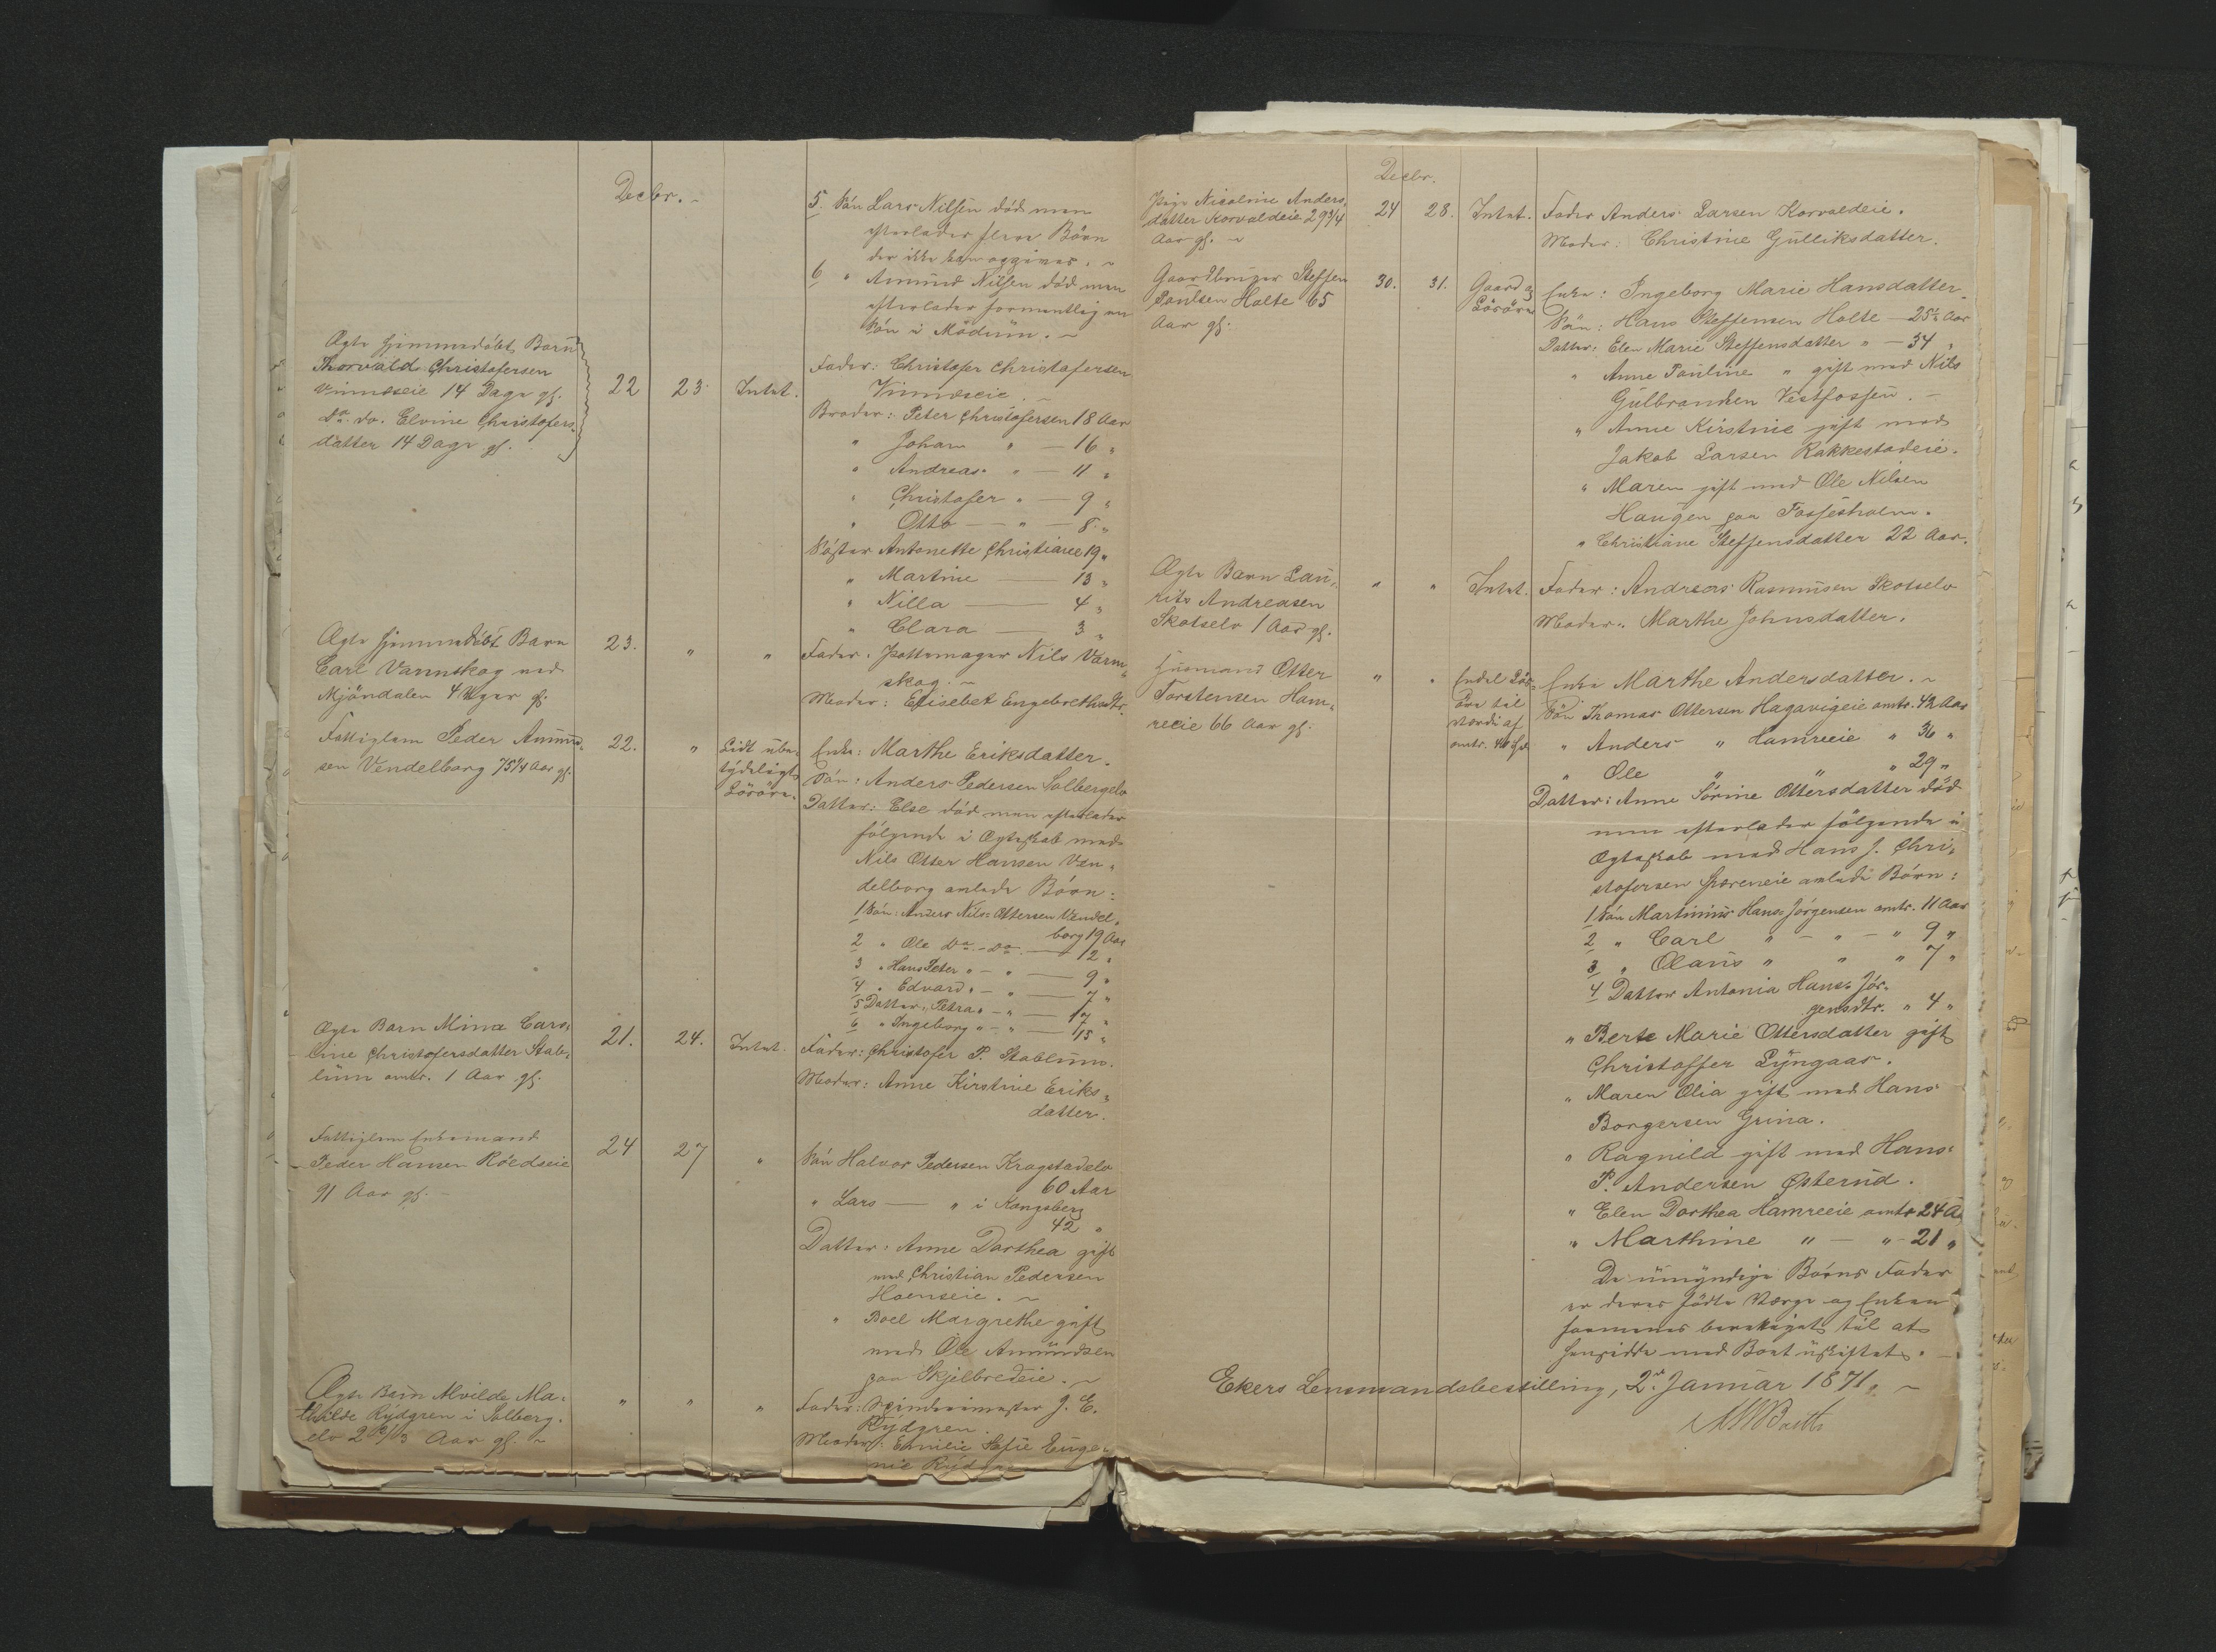 Decbr. -
5. Søn Lars Nilsen död men
efterlader flere Börn
der ikke kan opgives. -
6 " Amund Nilsen död men
efterlader formentlig en
Søn i Modum. -
Ægte hjemmedöbt Barn
Thorvald Christofersen
Vinnæseie 14 Dage gl.
Do. do. Elvine Christofers-
datter 14 Dage gl.
22 23. Intet.
Fader: Christofer Christofersen
Vinnæseie. -
Broder: Peter Christofersen 18 Aar
" Johan " — 16 "
" Andreas " — 11 "
" Christofer " — 9 "
" Otto — " — 8 "
Søster Antonette Christiane 19 "
" Martine — 13 "
" Nilla — 4 "
" Clara — 3 "
Ægte hjemmedöbt Barn
Carl Varmskog ved
Mjöndalen 4 Uger gl.
23. " "
Fader: Pottemager Nils Varm-
skog. -
Moder: Elisebet Engebrethsdtr.
Fattiglem Peder Amund-
sen Vendelborg 75 1/4 Aar gl.
22. " Lidt ube-
tydeligt
Lösöre.
Enke: Marthe Eriksdatter.
Søn: Anders Pedersen Solbergelv
Datter: Else död men efterlader
fölgende i Ægteskab med
Nils Otter Hansen Ven-
delborg avlede Börn:
1 Søn: Anders Nils: Ottersen Vendel-
borg 19 Aar
2 " Ole Do. - Do. — 12 "
3 " Hans Peter " - " — 9 "
4 " Edvard " - " — 7 "
5 Datter: Petra " - " — 17 "
6 " Ingeborg " - " — 15 "
Ægte Barn Mina Caro-
line Christofersdatter Stab-
lum omtr. 1 Aar gl.
21. 24. Intet.
Fader: Christofer P. Stablum.
Moder: Anne Kirstine Eriks-
datter.
Fattiglem Enkemand
Peder Hansen Röedseie
91 Aar gl. -
24 27 "
Søn Halvor Pedersen Krogstadelv
60 Aar
" Lars — " i Kongsberg
42 "
Datter: Anne Dorthea gift
med Christian Pedersen
Hoenseie. -
" Boel Margrethe gift
med Ole Amundsen
paa Skjelbredeie. -
Ægte Barn Alvilde Ma-
thilde Rydgren i Solberg-
elv 2 Aar gl. -
" " "
Fader: J. E.
Rydgren.
Moder: Emilie Sofie Euge-
nie Rydgren
Decbr.
Pige Nicoline Anders-
datter Korvaldeie 29 3/4
Aar gl. -
24 28. Intet.
Fader Anders Larsen Korvaldeie.
Moder: Christine Gulliksdatter.
Gaardbruger Steffen
Paulsen Holte 65
Aar gl.
30. 31. Gaard og
Lösöre
Enke: Ingeborg Marie Hansdatter
Søn: Hans Steffensen Holte — 25 1/2 Aar
Datter: Elen Marie Steffensdatter " — 34 "
" Anne Pauline " gift med Nils
Gulbrandsen Vestfossen. -
" Anne Kirstine gift med
Jakob Larsen Rakkestadeie.
" Maren gift med Ole Nilsen
Haugen paa Fossesholm.
" Christiane Steffensdatter 22 Aar.
Ægte Barn Lau-
rits Andreasen
Skotselv 1 Aar gl.
" " Intet.
Fader: Andreas Rasmusen Skotselv
Moder: Marthe Johnsdatter.
Husmand Otter
Torstensen Ham-
reeie 66 Aar gl.
" " Endel Lös-
öre til
værdi af
omtr. 40 Spd.
Enke Marthe Andersdatter. -
Søn Thomas Ottersen Hagavigeie omtr. 42 Aar
" Anders " Hamreeie " 36 "
" Ole " " " 29 "
Datter: Anne Sörine Ottersdatter död
men efterlader fölgende i
Ægteskab med Hans J. Chri-
stofersen avlede Börn:
1 Søn Martinius Hans: Jörgensen omtr. 11 Aar
2 " Carl " - " - " 9 "
3 " Olaus " " " 7 "
4 Datter Antonia Hans: Jör-
gensdtr. " 4 "
" Berte Marie Ottersdatter gift
Christoffer Lyngaas.
" Maren Olia gift med Hans
Borgersen Grina.
" Ragnild gift med Hans
P. Andersen Østerud.
" Elen Dorthea Hamreeie omtr 24 A
" Marthine " — " - 21 "
De umyndige Börns Fader
er deres födte Værge og Enken
formenes berettiget til at
hensidde med Boet uskiftet. -
Ekers Lensmandsbestilling, 2den Januar 1871. -